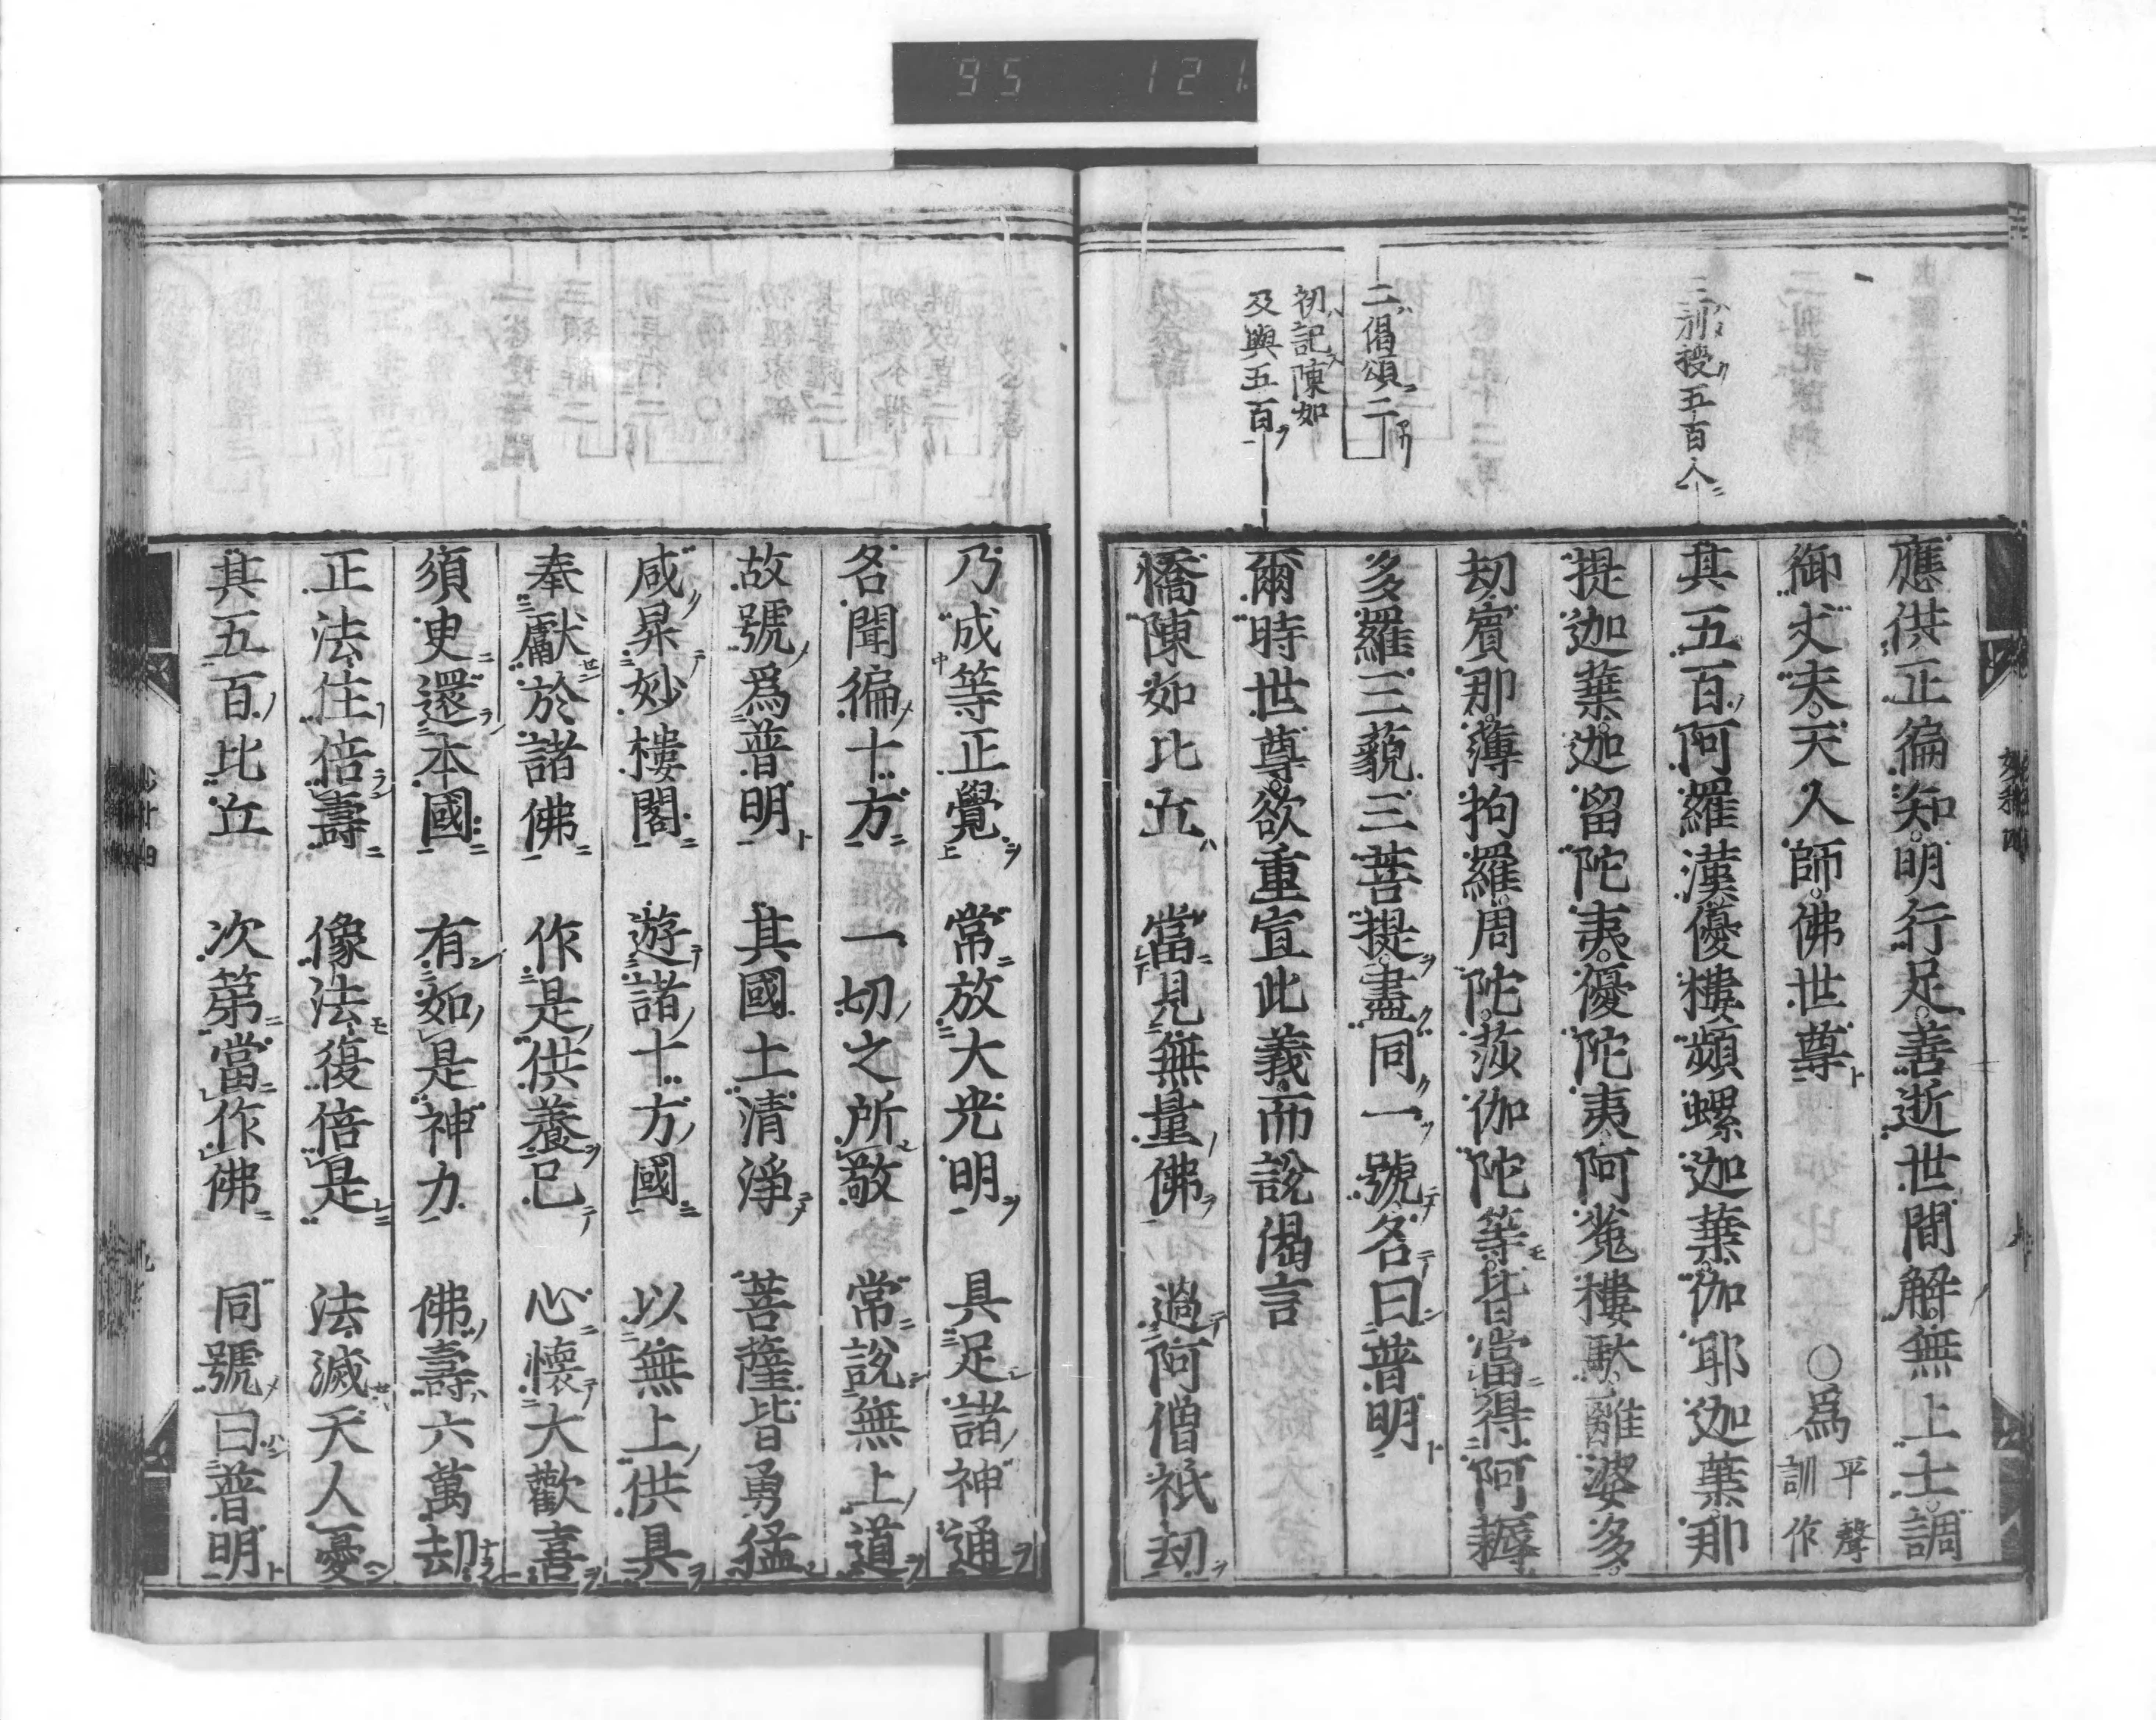 95 121
三別授五百人
二偈頌二
初記陳如
及與五百
應供正徧知明行足善逝世間解無上士調
御丈夫天人師佛世尊 ○爲平聲訓作
其五百阿羅漢優樓頻螺迦葉伽耶迦葉那
提迦葉迦留陀夷優陀夷阿㝹樓馱離婆多
劫賓那薄拘羅周陀莎伽陀等皆當得阿耨
多羅三藐三菩提盡同一號名曰普明
爾時世尊欲重宣此義而說偈言
憍陳如比丘 當見無量佛 過阿僧祇劫
乃成等正覺 常放大光明 具足諸神通
名聞徧十方 一切之所敬 常說無上道
故號爲普明 其國土清淨 菩薩皆勇猛
咸昇妙樓閣 遊諸十方國 以無上供具
奉獻於諸佛 作是供養已 心懷大歡喜
須臾還本國 有如是神力 佛壽六萬劫
正法住倍壽 像法復倍是 法滅天人憂
其五百比丘 次第當作佛 同號曰普明